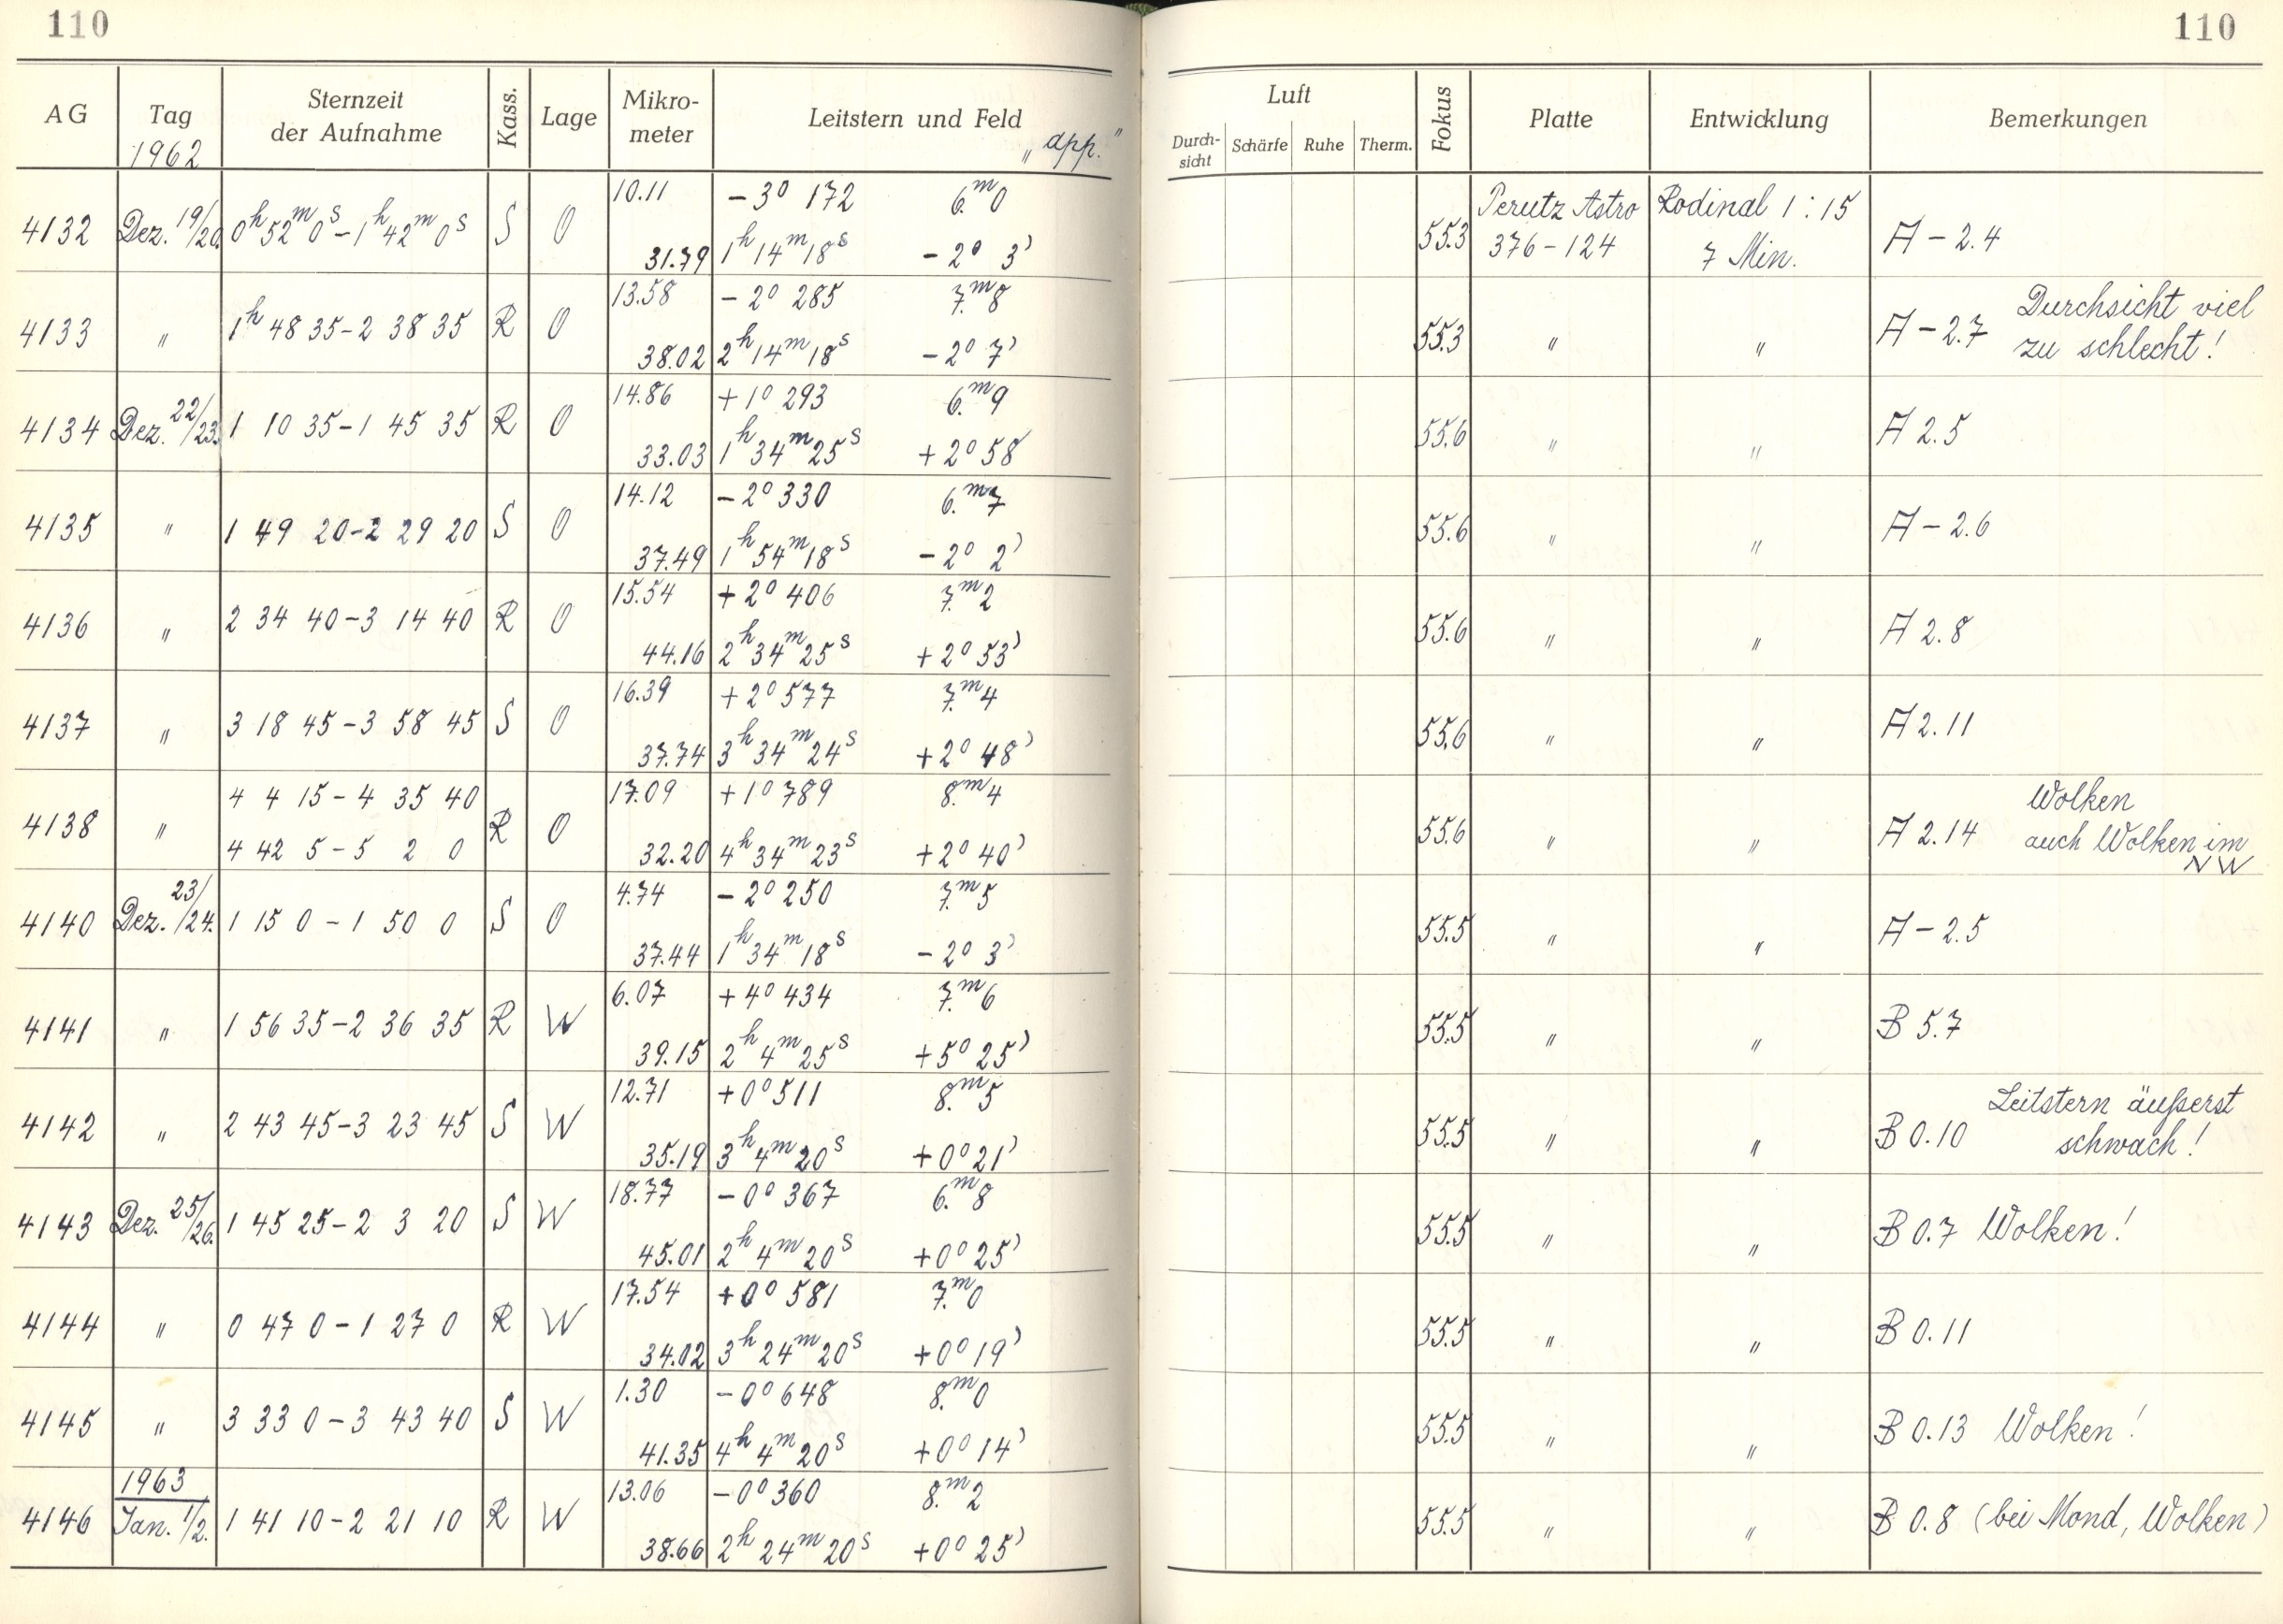 110
110
AG Tag Sternzeit der Aufnahme Kass. Lage Mikro-meter Leitstern und Feld
1962 „app."
Luft
Durch-sicht Schärfe Ruhe Therm. Fokus Platte Entwicklung Bemerkungen
4132 Dez. 19/20. 0h 52m 0s – 1h 42m 0s S O 10.11 – 3° 172 6.m0
31.79 1h 14m 18s – 2° 3'
55.3 Perutz Astro 376 – 124 Rodinal 1 : 15 7 Min. A – 2.4
4133 " 1h 48 35 – 2 38 35 R O 13.58 – 2° 285 7.m8
38.02 2h 14m 18s – 2° 7'
55.3 " " A – 2.7 Durchsicht viel zu schlecht!
4134 Dez. 22/23. 1 10 35 – 1 45 35 R O 14.86 + 1° 293 6.m9
33.03 1h 34m 25s + 2° 58
55.6 " " A 2.5
4135 " 1 49 20 – 2 29 20 S O 14.12 – 2° 330 6.m7
37.49 1h 54m 18s – 2° 2'
55.6 " " A – 2.6
4136 " 2 34 40 – 3 14 40 R O 15.54 + 2° 406 7.m2
44.16 2h 34m 25s + 2° 53'
55.6 " " A 2.8
4137 " 3 18 45 – 3 58 45 S O 16.39 + 2° 577 7.m4
37.74 3h 34m 24s + 2° 48'
55.6 " " A 2.11
4138 " 4 4 15 – 4 35 40
4 42 5 – 5 2 0 R O 17.09 + 1° 789 8.m4
32.20 4h 34m 23s + 2° 40'
55.6 " " A 2.14 Wolken
auch Wolken im
NW
4140 Dez. 23/24. 1 15 0 – 1 50 0 S O 4.74 – 2° 250 7.m5
37.44 1h 34m 18s – 2° 3'
55.5 " " A – 2.5
4141 " 1 56 35 – 2 36 35 R W 6.07 + 4° 434 7.m6
39.15 2h 4m 25s + 5° 25'
55.5 " " B 5.7
4142 " 2 43 45 – 3 23 45 S W 12.71 + 0° 511 8.m5
35.19 3h 4m 20s + 0° 21'
55.5 " " B 0.10 Leitstern äußerst
schwach!
4143 Dez. 25/26. 1 45 25 – 2 3 20 S W 18.77 – 0° 367 6.m8
45.01 2h 4m 20s + 0° 25'
55.5 " " B 0.7 Wolken!
4144 " 0 47 0 – 1 27 0 R W 17.54 + 0° 581 7.m0
34.02 3h 24m 20s + 0° 19'
55.5 " " B 0.11
4145 " 3 33 0 – 3 43 40 S W 1.30 – 0° 648 8.m0
41.35 4h 4m 20s + 0° 14'
55.5 " " B 0.13 Wolken!
1963
4146 Jan. 1/2. 1 41 10 – 2 21 10 R W 13.06 – 0° 360 8.m2
38.66 2h 24m 20s + 0° 25'
55.5 " " B 0.8 (bei Mond, Wolken)